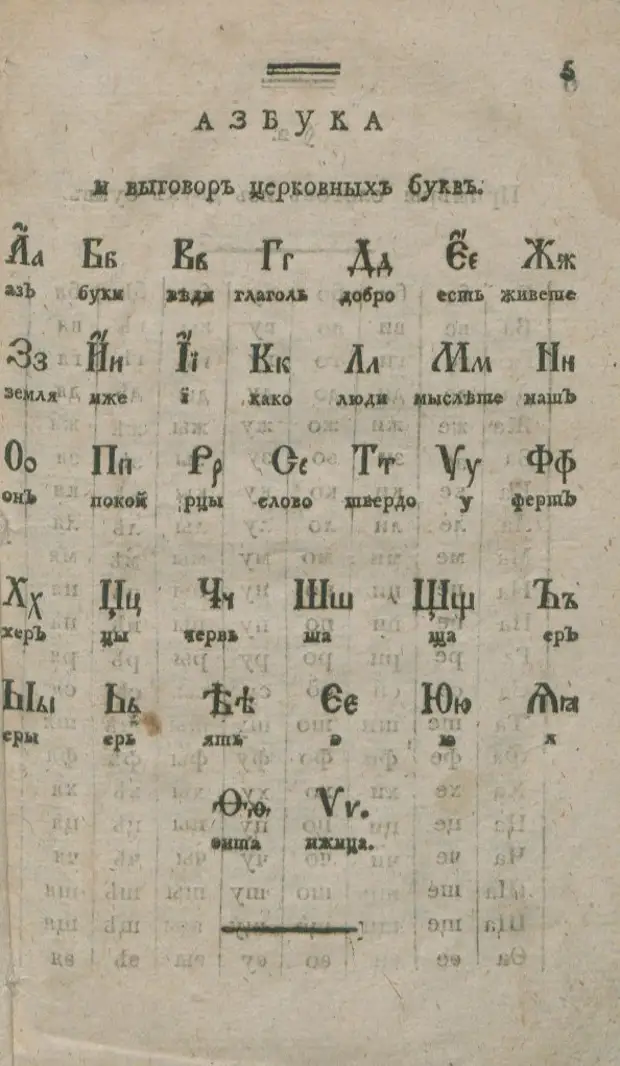 5
АЗБУКА
и выговоръ церковныхъ буквъ.
А҆а Бб Вв Гг Дд Є҆є Жж
азъ буки вѣди глаголь добро есть живете
Зз И҆и І҆і Кк Лл Мм Нн
земля иже ї како люди мыслѣте нашъ
Оо Пп Рр Сс Тт Ѵу Фф
онъ покой рцы слово твердо у фертъ
Хх Цц Чч Шш Щщ Ъъ
херъ цы червь ша ща еръ
Ыы Ьь Ѣѣ Єє Юю Ѧꙗ
еры ерь ять э ю я
Ѳѳ Ѵѵ.
ѳита ижица.